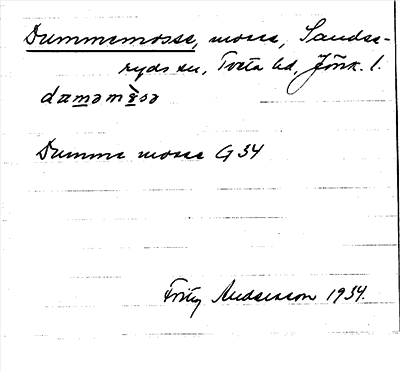 Dummemosse, mosse, Sandse-
ryds sn, Tveta hd, Jönk. l.
daməmɵ̀sə
Dumme mosse G 34
Fritz Andersson 1934.